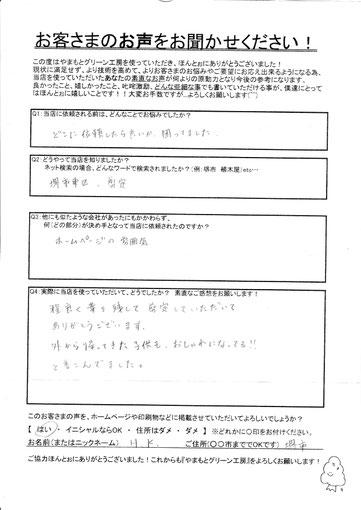 お客さまのお声をお聞かせください！
この度はやまもとグリーン工房を使っていただき、ほんとぉにありがとうございました！
現状に満足せず、より技術を高めて、よりお客さまのお悩みやご要望にお応え出来るようになる為、
当店を使っていただいたあなたの素直なお声が何よりの原動力となり今後の参考になります。
良かったこと、嬉しかったこと、叱咤激励、どんな些細な事でも書いていただける事が、僕達にとって
はほんとぉに嬉しいことです！！大変お手数ですが…よろしくお願いします(^^)
Q1：当店に依頼される前は、どんなことでお悩みでしたか？
どこに依頼したら良いか、困ってました。
Q2：どうやって当店を知りましたか？
ネット検索の場合、どんなワードで検索されましたか？（例：堺市 植木屋）etc…
堺市東区、剪定
Q3：他にも似たような会社があったにもかかわらず、
何（どの部分）が決め手となって当店に依頼されたのですか？
ホームページの雰囲気
Q4：実際に当店を使っていただいて、どうでしたか？ 素直なご感想をお願いします！
程良く葉を残して剪定していただいて
ありがとうございます。
外から帰ってきた子供も、おしゃれになってる!!
と喜こんでました。
このお客さまの声を、ホームページや印刷物などに掲載させていただいてよろしいでしょうか？
【 はい ・ イニシャルならOK ・ 住所はダメ ・ ダメ 】 ※どれかに〇印をお付けください。
お名前（またはニックネーム） H.K. ご住所（〇〇市まででOKです） 堺市
ご協力ほんとぉにありがとうございました！これからも『やまもとグリーン工房』をよろしくお願いします！